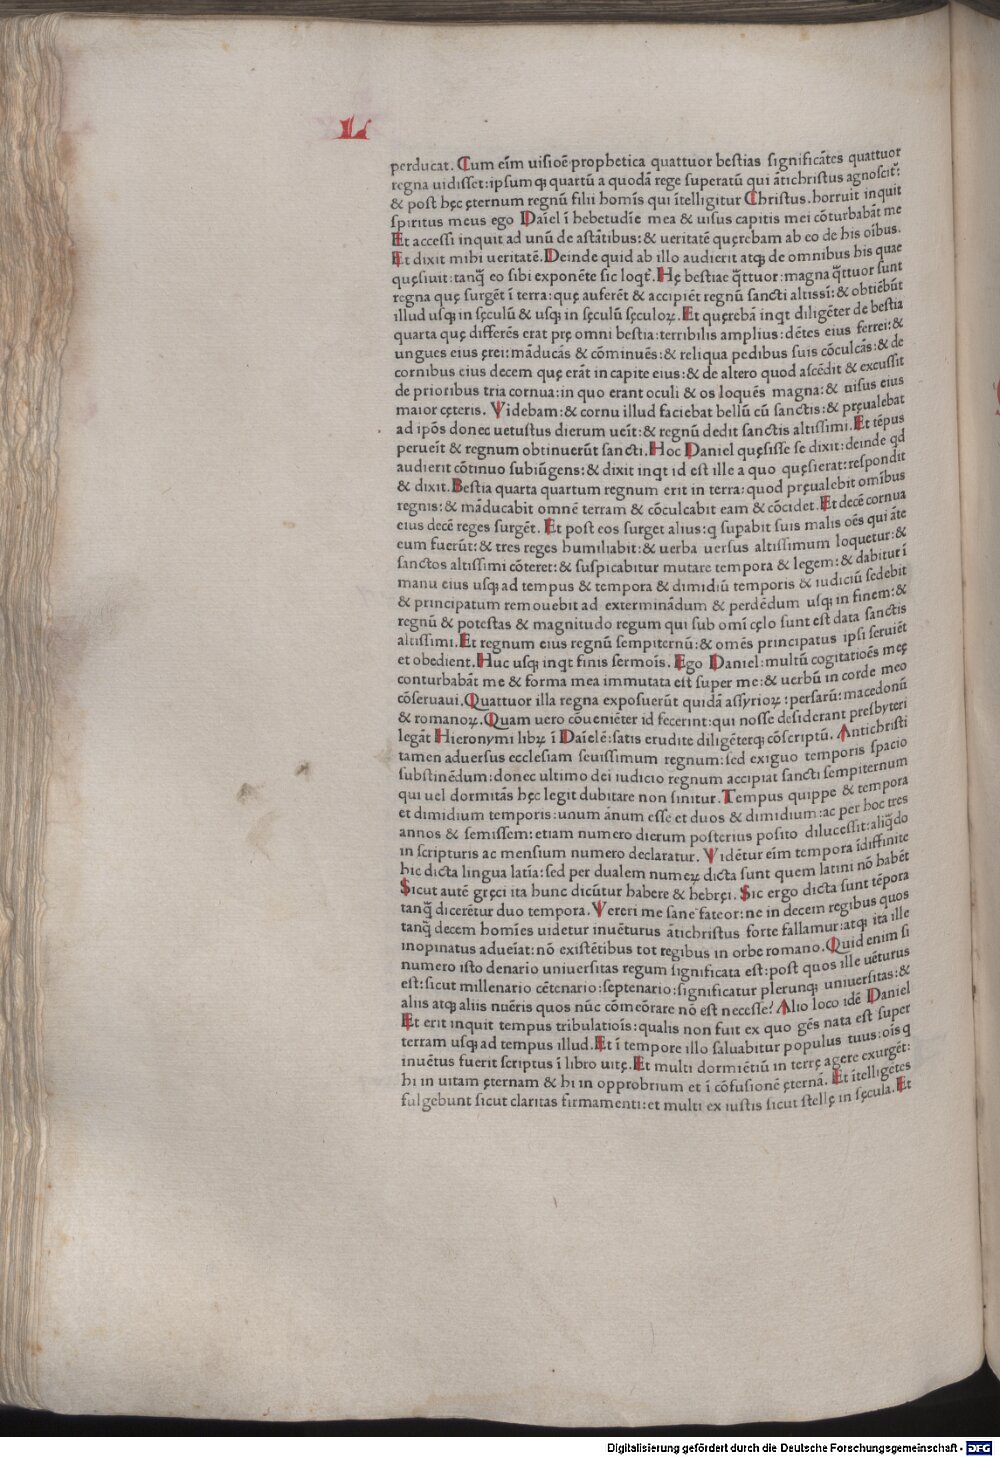 L
perducat. Cum eĩm uisiõe prophetica quattuor bestias significãtes quattuor
regna uidisset: ipsumqꝫ quartũ a quodã rege superatũ qui ãtichristus agnoscit̃:
& post hęc ęternum regnũ filii homĩs qui ĩtelligitur Christus. horruit inquit
spiritus meus ego Daĩel ĩ hebetudĩe mea & uisus capitis mei cõturbabãt me
Et accessi inquit ad unũ de astãtibus: & ueritatẽ quęrebam ab eo de his oĩbus.
Et dixit mihi ueritatẽ. Deinde quid ab illo audierit atqꝫ de omnibus his quae
quęsiuit: tanq̃ eo sibi exponẽte sic loqt̃. Hę bestiae q̃ttuor: magna q̃ttuor sunt
regna quę surgẽt ĩ terra: quę auferẽt & accipiẽt regnũ sancti altissĩ: & obtiẽbũt
illud usqꝫ in sęculũ & usqꝫ in sęculũ sęculoꝝ. Et quęrebã inqt diligẽter de bestia
quarta quę differẽs erat prę omni bestia: terribilis amplius: dẽtes eius ferrei: &
ungues eius ęrei: mãducãs & cõminuẽs: & reliqua pedibus suis cõculcãs: & de
cornibus eius decem quę erãt in capite eius: & de altero quod ascẽdit & excussit
de prioribus tria cornua: in quo erant oculi & os loquẽs magna: & uisus eius
maior cęteris. Videbam: & cornu illud faciebat bellũ cũ sanctis: & pręualebat
ad ipõs donec uetustus dierum ueĩt: & regnũ dedit sanctis altissimi. Et tẽpus
perueĩt & regnum obtinuerũt sancti. Hoc Daniel quęsisse se dixit: deinde qd
audierit cõtinuo subiũgens: & dixit inqt id est ille a quo quęsierat: respondit
& dixit. Bestia quarta quartum regnum erit in terra: quod pręualebit omĩbus
regnis: & mãducabit omnẽ terram & cõculcabit eam & cõcidet. Et decẽ cornua
eius decẽ reges surgẽt. Et post eos surget alius: q supabit suis malis oẽs qui ãte
eum fuerũt: & tres reges humiliabit: & uerba uersus altissimum loquetur: &
sanctos altissimi cõteret: & suspicabitur mutare tempora & legem: & dabitur ĩ
manu eius usqꝫ ad tempus & tempora & dimidiũ temporis & iudiciũ sedebit
& principatum remouebit ad exterminãdum & perdẽdum usqꝫ in finem: &
regnũ & potestas & magnitudo regum qui sub omĩ cęlo sunt est data sanctis
altissimi. Et regnum eius regnũ sempiternũ: & omẽs principatus ipsi seruiẽt
et obedient. Huc usqꝫ inqt finis sermoĩs. Ego Daniel: multũ cogitatioẽs meę
conturbabãt me & forma mea immutata est super me: & uerbũ in corde meo
cõseruaui. Quattuor illa regna exposuerũt quidã assyrioꝝ: persarũ: macedonũ
& romanoꝝ. Quam uero cõueniẽter id fecerint: qui nosse desiderant presbyteri
legãt Hieronymi libꝝ ĩ Daĩelẽ: satis erudite diligẽterqꝫ cõscriptũ. Antichristi
tamen aduersus ecclesiam seuissimum regnum: sed exiguo temporis spacio
substinẽdum: donec ultimo dei iudicio regnum accipiat sancti sempiternum
qui uel dormitãs hęc legit dubitare non sinitur. Tempus quippe & tempora
et dimidium temporis: unum ãnum esse et duos & dimidium: ac per hoc tres
annos & semissem: etiam numero dierum posterius posito dilucessit: aliq̃do
in scripturis ac mensium numero declaratur. Vidẽtur eĩm tempora ĩdiffinite
hic dicta lingua latĩa: sed per dualem numeꝝ dicta sunt quem latini nõ habẽt
Sicut autẽ gręci ita hunc dicũtur habere & hebręi. Sic ergo dicta sunt tẽpora
tanq̃ dicerẽtur duo tempora. Vereri me sane fateor: ne in decem regibus quos
tanq̃ decem homĩes uidetur inuẽturus ãtichristus forte fallamur: atqꝫ ita ille
inopinatus adueĩat: nõ existẽtibus tot regibus in orbe romano. Quid enim si
numero isto denario uniuersitas regum significata est: post quos ille uẽturus
est: sicut millenario cẽtenario: septenario: significatur plerunqꝫ uniuersitas: &
aliis atqꝫ aliis nuẽris quos nũc cõmeõrare nõ est necesse? Alio loco idẽ Daniel
Et erit inquit tempus tribulatioĩs: qualis non fuit ex quo gẽs nata est super
terram usqꝫ ad tempus illud. Et ĩ tempore illo saluabitur populus tuus: oĩs q
inuẽtus fuerit scriptus ĩ libro uitę. Et multi dormiẽtiũ in terrę agere exurgẽt:
hi in uitam ęternam & hi in opprobrium et ĩ cõfusionẽ ęternã. Et ĩtelligẽtes
fulgebunt sicut claritas firmamenti: et multi ex iustis sicut stellę in sęcula. Et
Digitalisierung gefördert durch die Deutsche Forschungsgemeinschaft - DFG